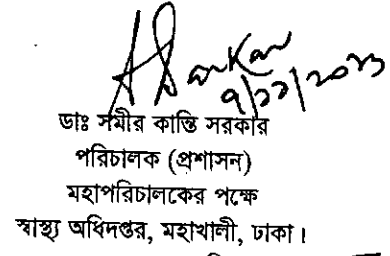 ডাঃ সমীর কান্তি সরকার
পরিচালক (প্রশাসন)
মহাপরিচালকের পক্ষে
স্বাস্থ্য অধিদপ্তর, মহাখালী, ঢাকা।